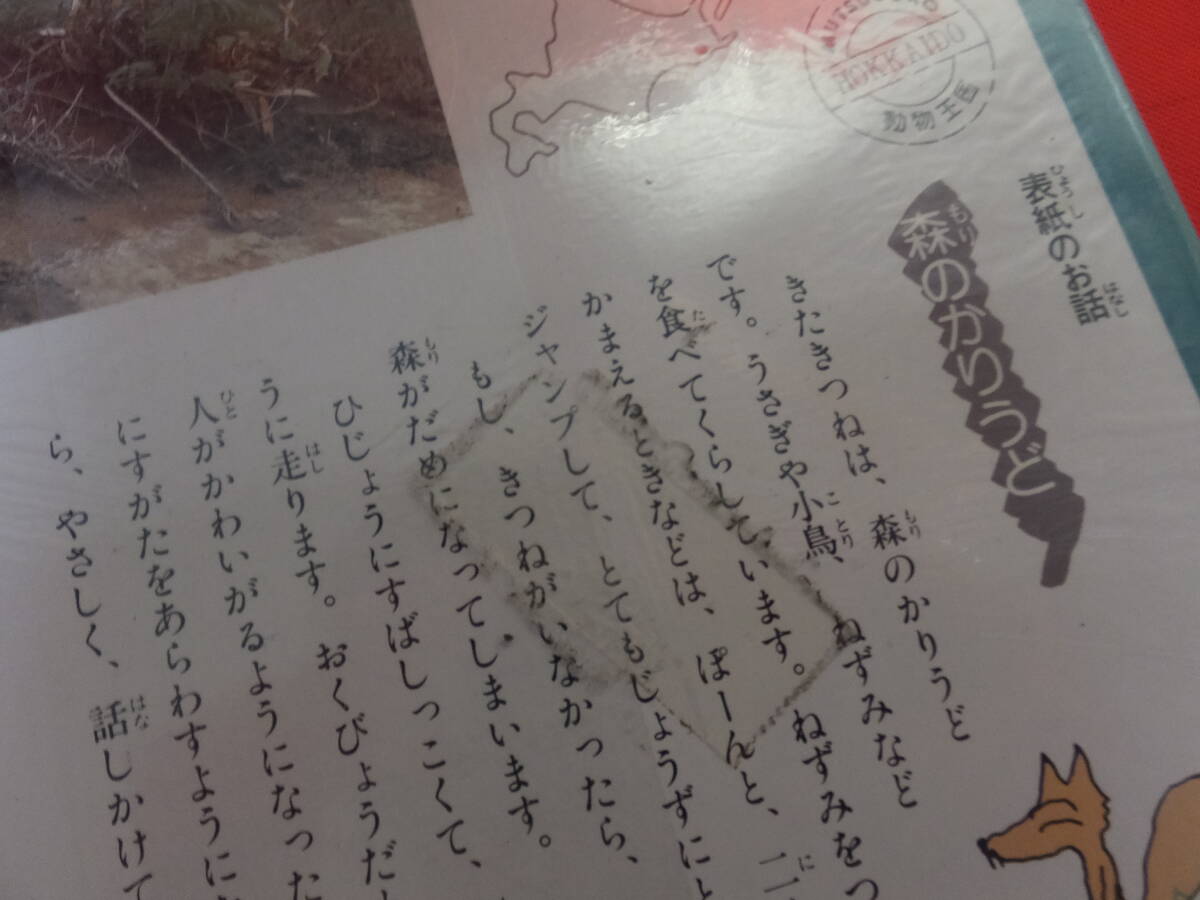 HOKKAIDO
動物王国
表紙のお話
森のかりうど
きたきつねは、森のかりうど
です。うさぎや小鳥、ねずみなど
を食べてくらしています。ねずみをつ
かまえるときなどは、ぽーんと、二
ジャンプして、とてもじょうずにと
もし、きつねがいなかったら、
森がだめになってしまいます。
ひじょうにすばしっこくて、
うに走ります。おくびょうだ
人がかわいがるようになった
にすがたをあらわすように
ら、やさしく、話しかけて